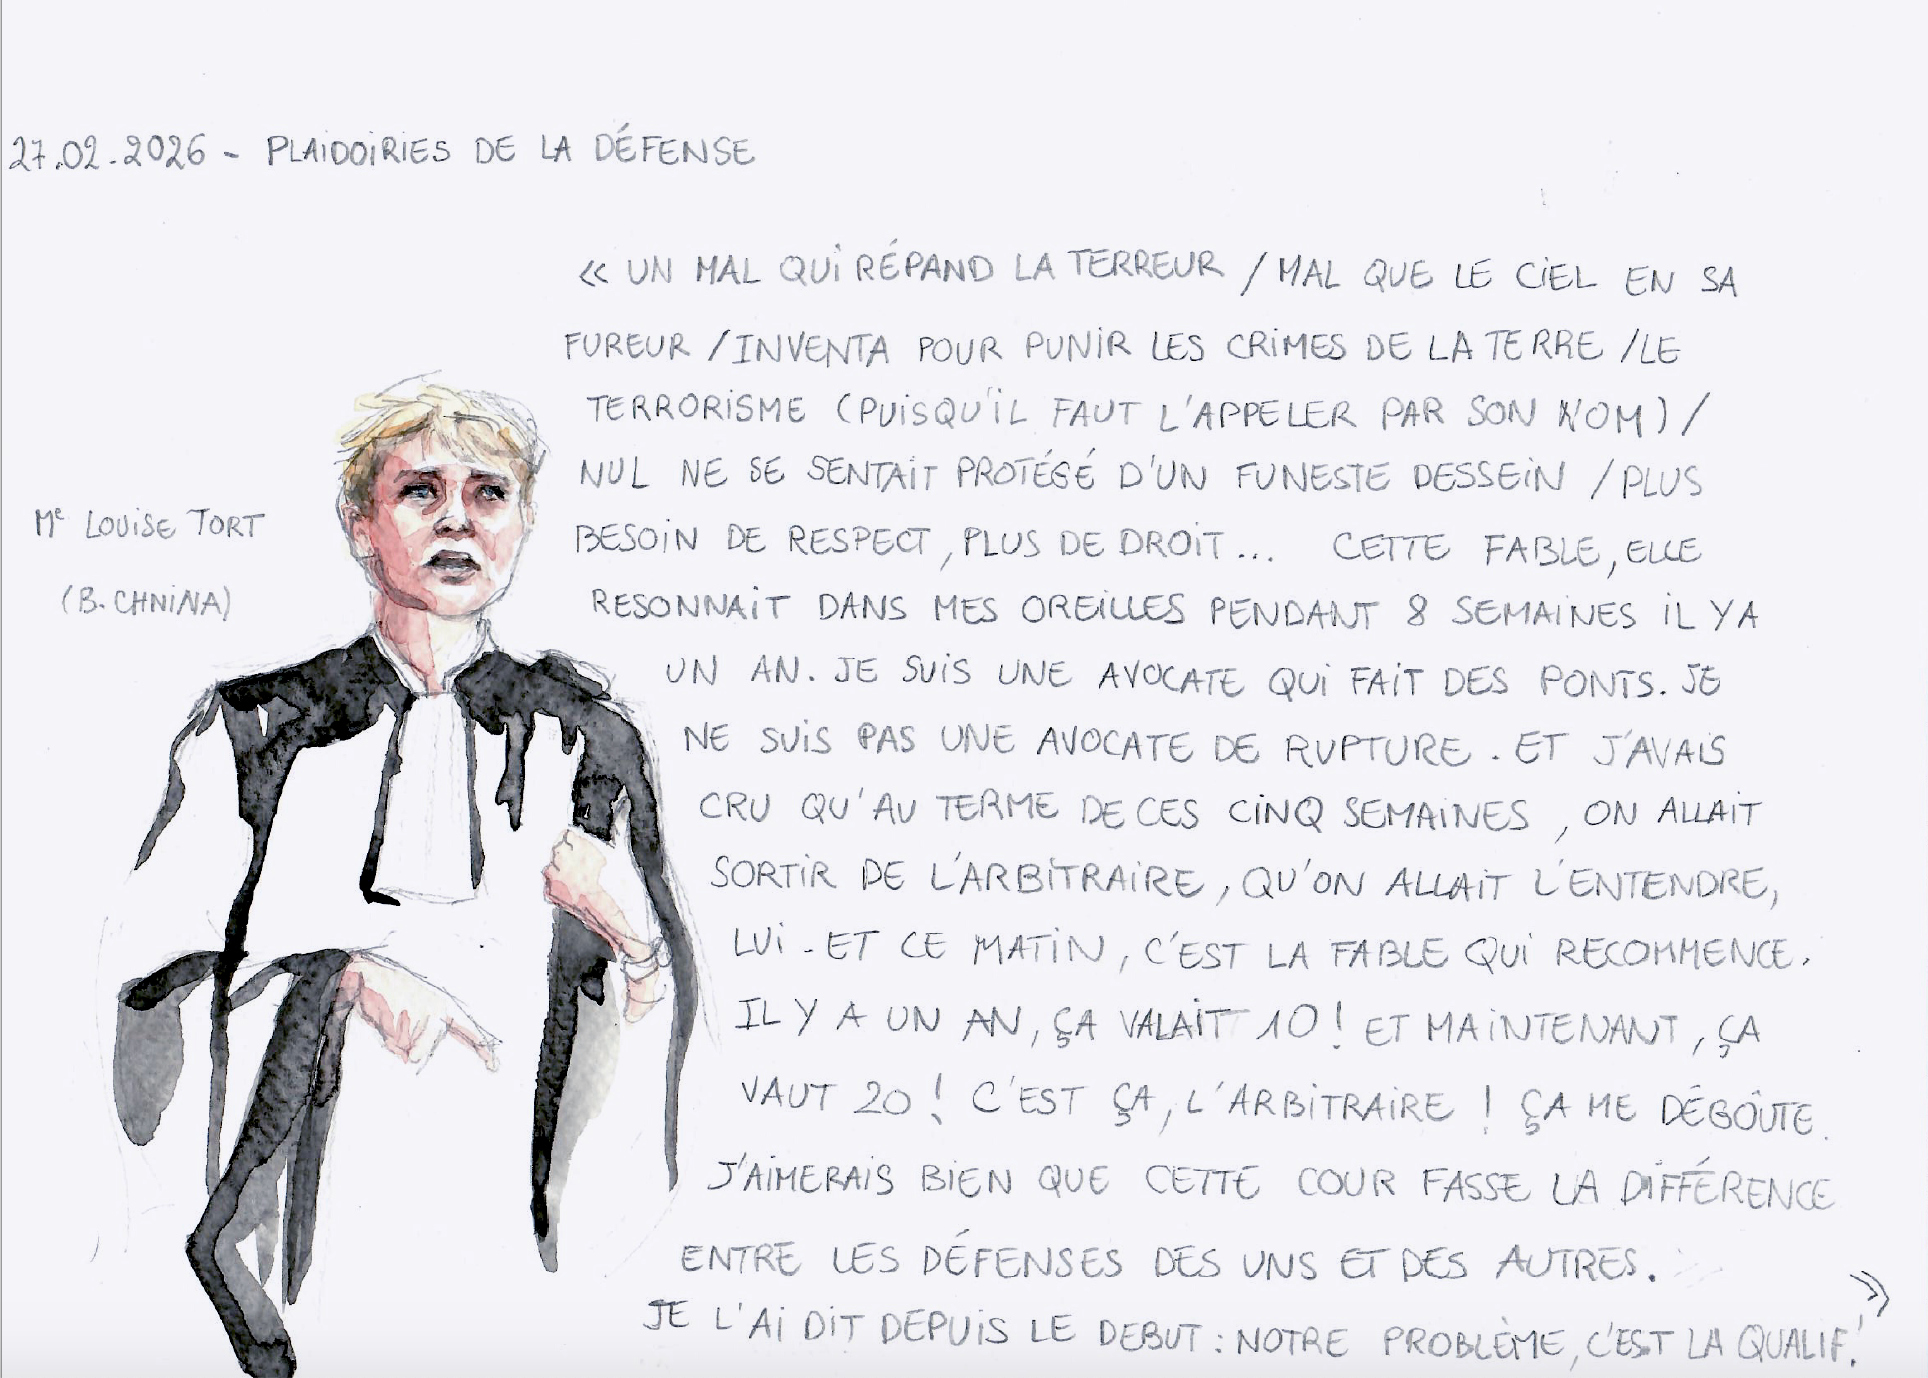 27.02.2026 - PLAIDOIRIES DE LA DÉFENSE
« UN MAL QUI RÉPAND LA TERREUR / MAL QUE LE CIEL EN SA
FUREUR / INVENTA POUR PUNIR LES CRIMES DE LA TERRE / LE
TERRORISME (PUISQU'IL FAUT L'APPELER PAR SON NOM) /
NUL NE SE SENTAIT PROTÉGÉ D'UN FUNESTE DESSEIN / PLUS
BESOIN DE RESPECT, PLUS DE DROIT... CETTE FABLE, ELLE
RESONNAIT DANS MES OREILLES PENDANT 8 SEMAINES IL Y A
UN AN. JE SUIS UNE AVOCATE QUI FAIT DES PONTS. JE
NE SUIS PAS UNE AVOCATE DE RUPTURE. ET J'AVAIS
CRU QU'AU TERME DE CES CINQ SEMAINES, ON ALLAIT
SORTIR DE L'ARBITRAIRE, QU'ON ALLAIT L'ENTENDRE,
LUI. ET CE MATIN, C'EST LA FABLE QUI RECOMMENCE.
IL Y A UN AN, ÇA VALAIT 10 ! ET MAINTENANT, ÇA
VAUT 20 ! C'EST ÇA, L'ARBITRAIRE ! ÇA ME DÉGOÛTE.
J'AIMERAIS BIEN QUE CETTE COUR FASSE LA DIFFÉRENCE
ENTRE LES DÉFENSES DES UNS ET DES AUTRES.
JE L'AI DIT DEPUIS LE DEBUT : NOTRE PROBLÈME, C'EST LA QUALIF.' »
Me LOUISE TORT
(B. CHNINA)